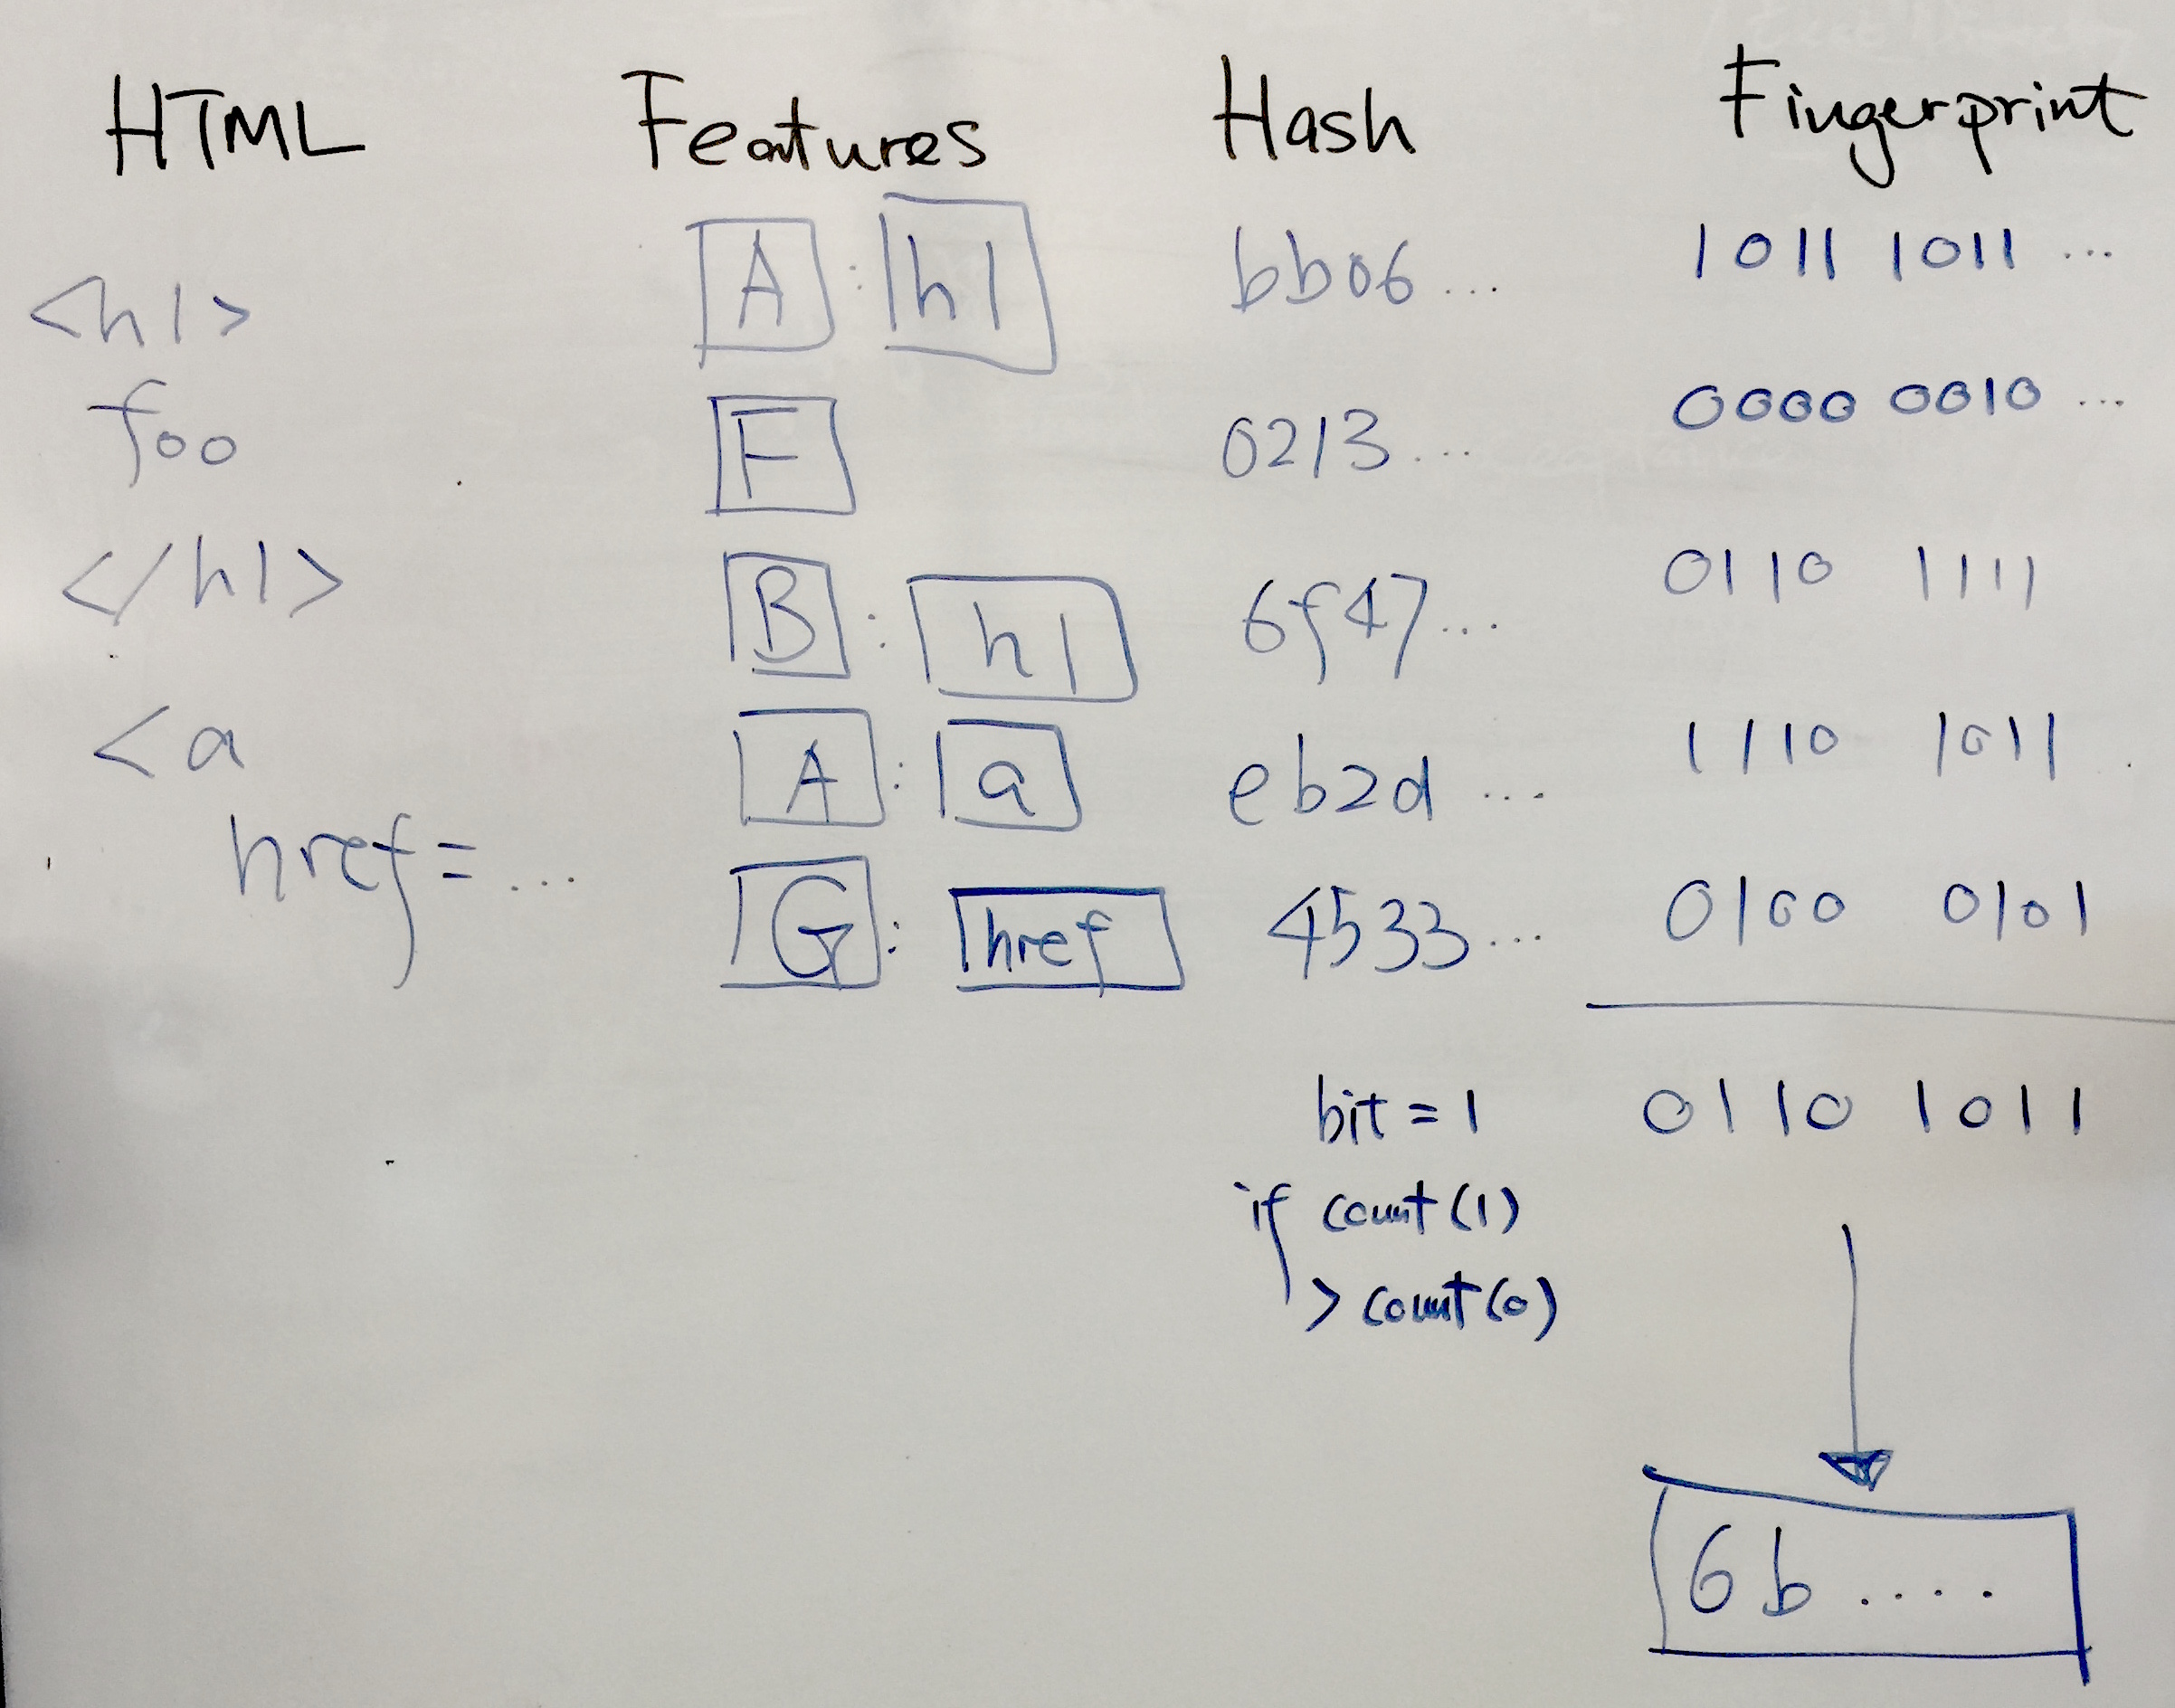 HTML Features Hash Fingerprint
<h1> A : h1 bb06 ... 1011 1011 ...
foo F 0213 ... 0000 0010 ...
</h1> B : h1 6f47 ... 0110 1111
<a A : a eb2d ... 1110 1011 .
href= ... G : href 4533 ... 0100 0101
bit = 1 0110 1011
if count(1)
> count(0)
6b ....